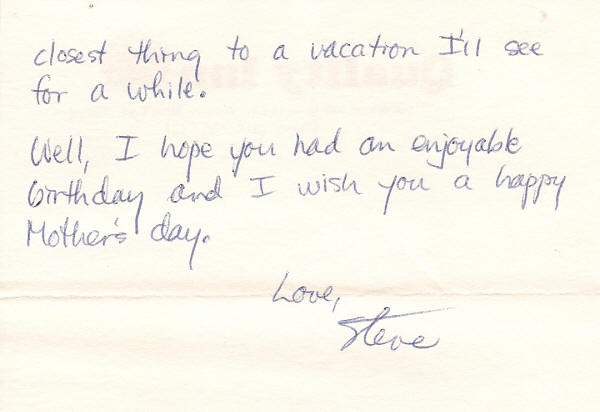 closest thing to a vacation I'll see
for a while.
Well, I hope you had an enjoyable
birthday and I wish you a happy
Mother's day.
Love,
Steve